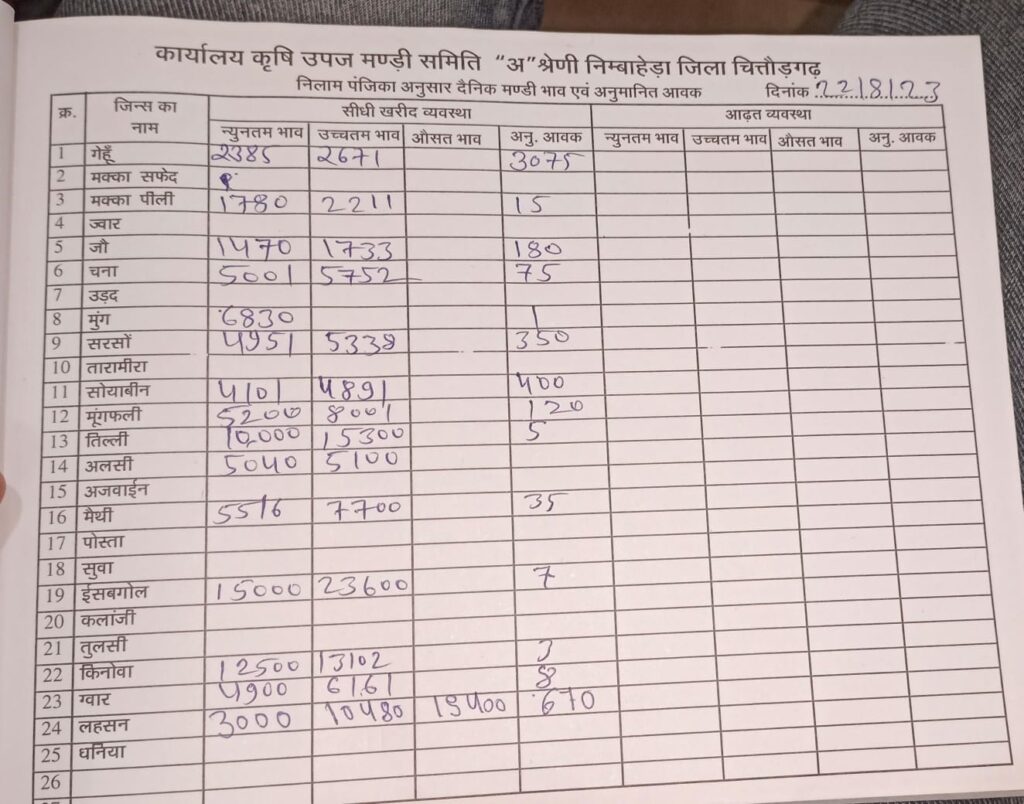 कार्यालय कृषि उपज मण्डी समिति "अ" श्रेणी निम्बाहेड़ा जिला चित्तौड़गढ़
निलाम पंजिका अनुसार दैनिक मण्डी भाव एवं अनुमानित आवक दिनांक 22/8/23
क्र. जिन्स का नाम सीधी खरीद व्यवस्था आढ़त व्यवस्था
न्युनतम भाव उच्चतम भाव औसत भाव अनु. आवक न्युनतम भाव उच्चतम भाव औसत भाव अनु. आवक
1 गेहूँ 2385 2671 3075
2 मक्का सफेद
3 मक्का पीली 1780 2211 15
4 ज्वार
5 जौ 1470 1733 180
6 चना 5001 5752 75
7 उड़द
8 मुंग 6830 1
9 सरसों 4951 5339 350
10 तारामीरा
11 सोयाबीन 4101 4891 400
12 मूंगफली 5200 8001 120
13 तिल्ली 10000 15300 5
14 अलसी 5040 5100
15 अजवाईन
16 मैथी 5516 7700 35
17 पोस्ता
18 सुवा
19 ईसबगोल 15000 23600 7
20 कलांजी
21 तुलसी
22 किनोवा 12500 13102 3
23 ग्वार 4900 6161 8
24 लहसन 3000 10480 19400 670
25 धनिया
26